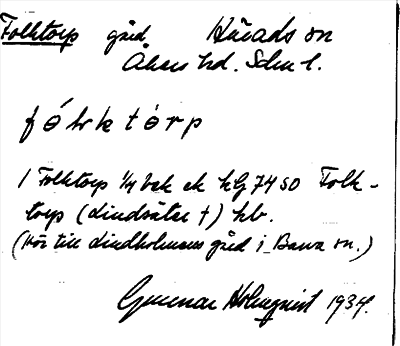 Folktorp gård Härads sn
Åkers hd. Sdm l.
fólktòrp
1 Folktorp 1/4 bek ek hG 7450 Folk-
torp (Lindsätar †) hb.
(Hör till Lindholmens gård i Barva sn.)
Gunnar Holmquist 1934.